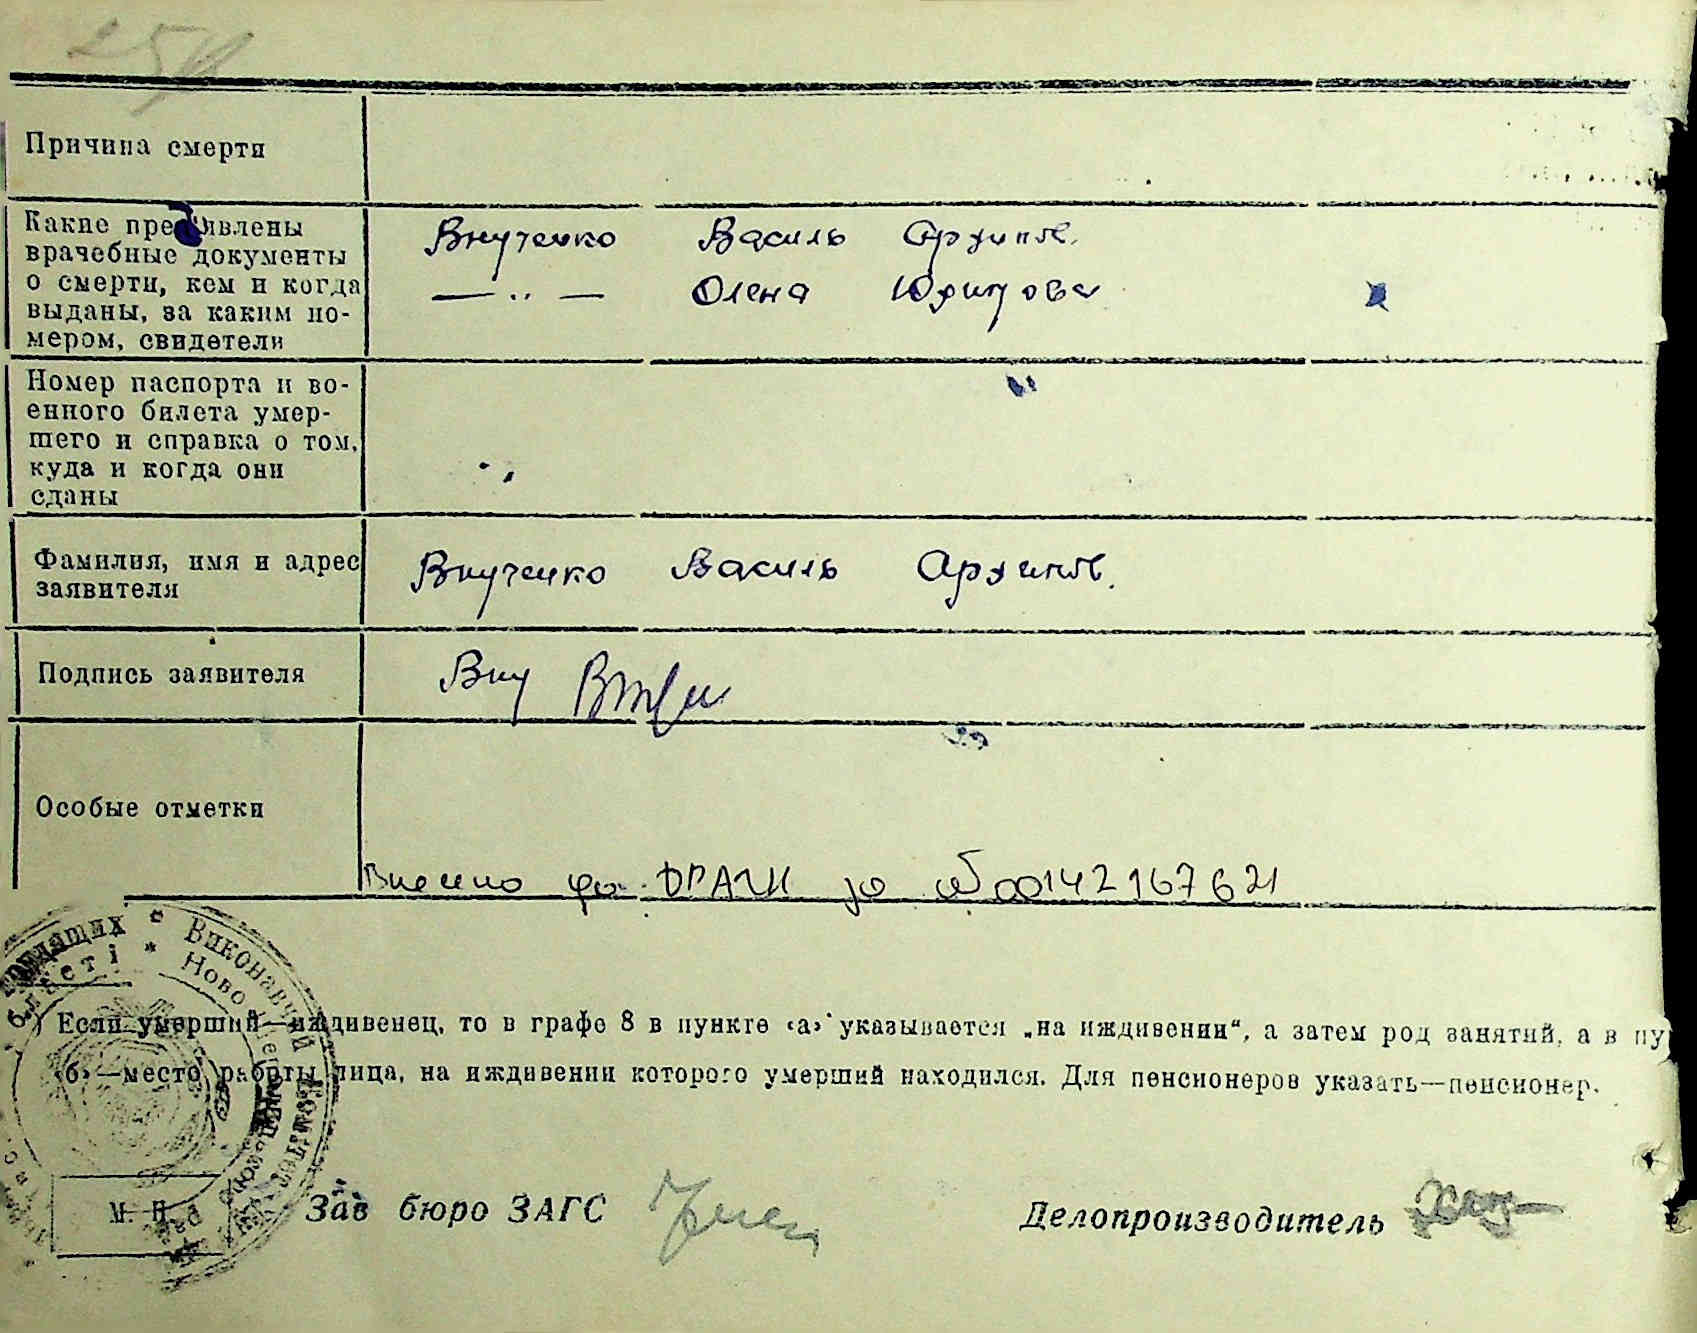 Причина смерти
Какие предъявлены
врачебные документы
о смерти, кем и когда
выданы, за каким но-
мером, свидетели
Внученко Василь Архипів.
— „ — Олена Юхимова
Номер паспорта и во-
енного билета умер-
шего и справка о том,
куда и когда они
сданы
Фамилия, имя и адрес
заявителя
Внученко Василь Архипів.
Подпись заявителя
Вну
Особые отметки
Внесено до ДРАЦС за № 00142167621
Виконавчий
Ново
області
Если умерший—иждивенец, то в графе 8 в пункте «а» указывается „на иждивении“, а затем род занятий, а в пу
«б»—место работы лица, на иждивении которого умерший находился. Для пенсионеров указать—пенсионер.
М. П.
Зав бюро ЗАГС
Делопроизводитель